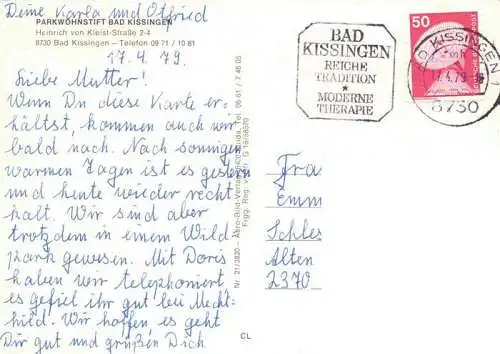 Deine Karla und Otfried
PARKWOHNSTIFT BAD KISSINGEN
Heinrich von Kleist-Straße 2-4
8730 Bad Kissingen – Telefon 09 71 / 10 81
17.4.79.
Liebe Mutter!
Wenn Du diese Karte er-
hältst, kommen auch wir
bald nach. Nach sonnigen
warmen Tagen ist es gestern
und heute wieder recht
kalt. Wir sind aber
trotzdem in einem Wild
park gewesen. Mit Doris
haben wir telephoniert,
es gefiel ihr gut bei Mecht-
hild. Wir hoffen, es geht
Dir gut und grüßen Dich
CL
BAD
KISSINGEN
REICHE
TRADITION
★
MODERNE
THERAPIE
50
BAD KISSINGEN 1
17.4.79
8730
Fra
Emm
Schles
Alten
2370